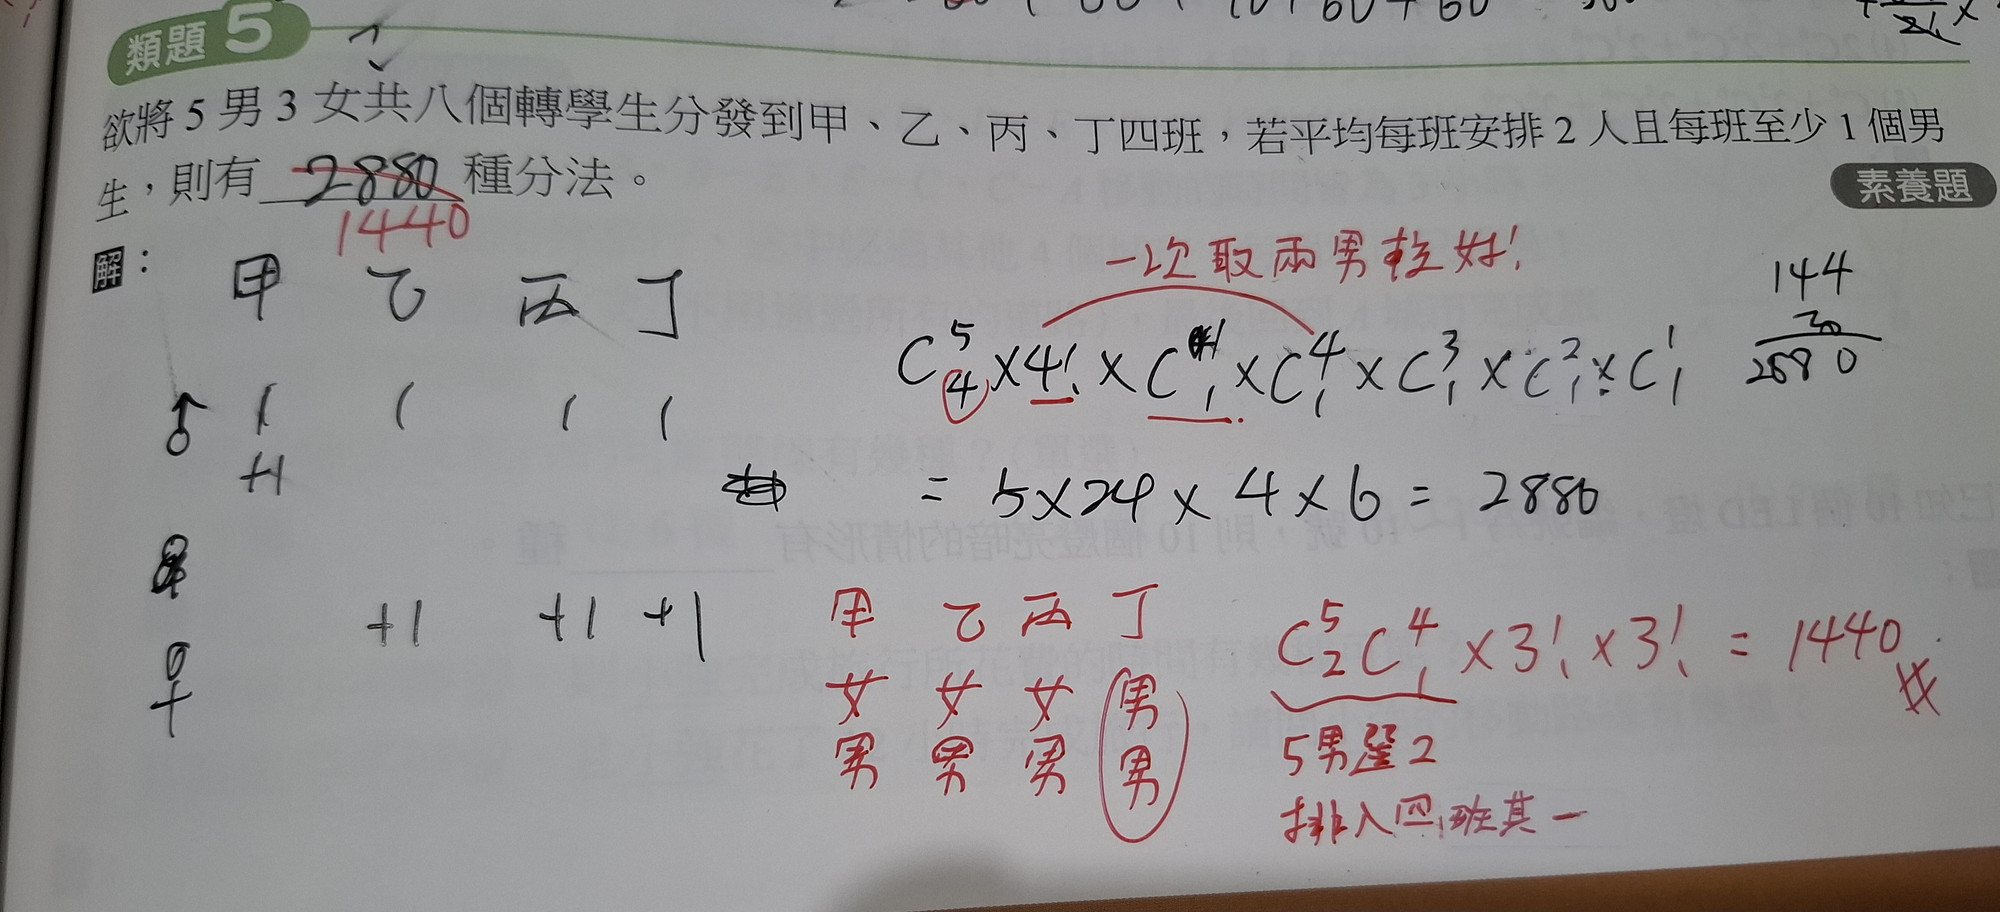 類題 5
欲將 5 男 3 女共八個轉學生分發到甲、乙、丙、丁四班，若平均每班安排 2 人且每班至少 1 個男
生，則有 2880 種分法。
1440
素養題
解：
甲 乙 丙 丁
一次取兩男較好!
144
20
2880
♂ 1 1 1 1
+1
C⁵₄ × 4! × C₁ × C⁴₁ × C³₁ × C²₁ × C¹₁
= 5×24 × 4 × 6 = 2880
♀ +1 +1 +1
甲 乙 丙 丁
女 女 女 男
男 男 男 男
C⁵₂ C⁴₁ × 3! × 3! = 1440
5男選2
排入四班其一